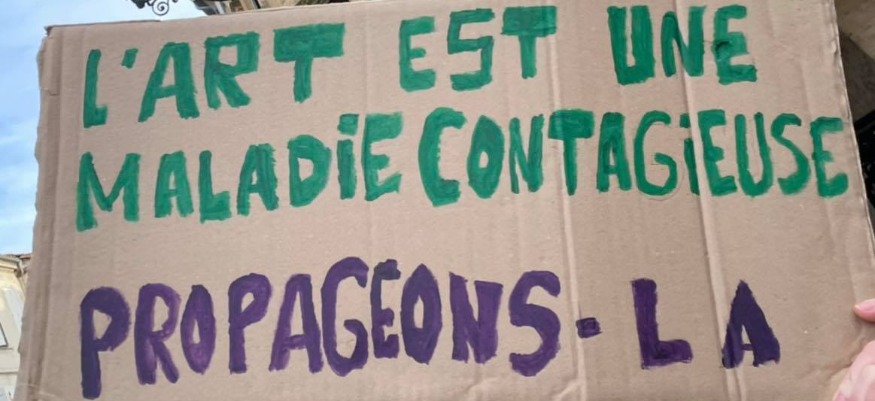 L'ART EST UNE
MALADiE CONTAGiEUSE
PROPAGEONS-LA